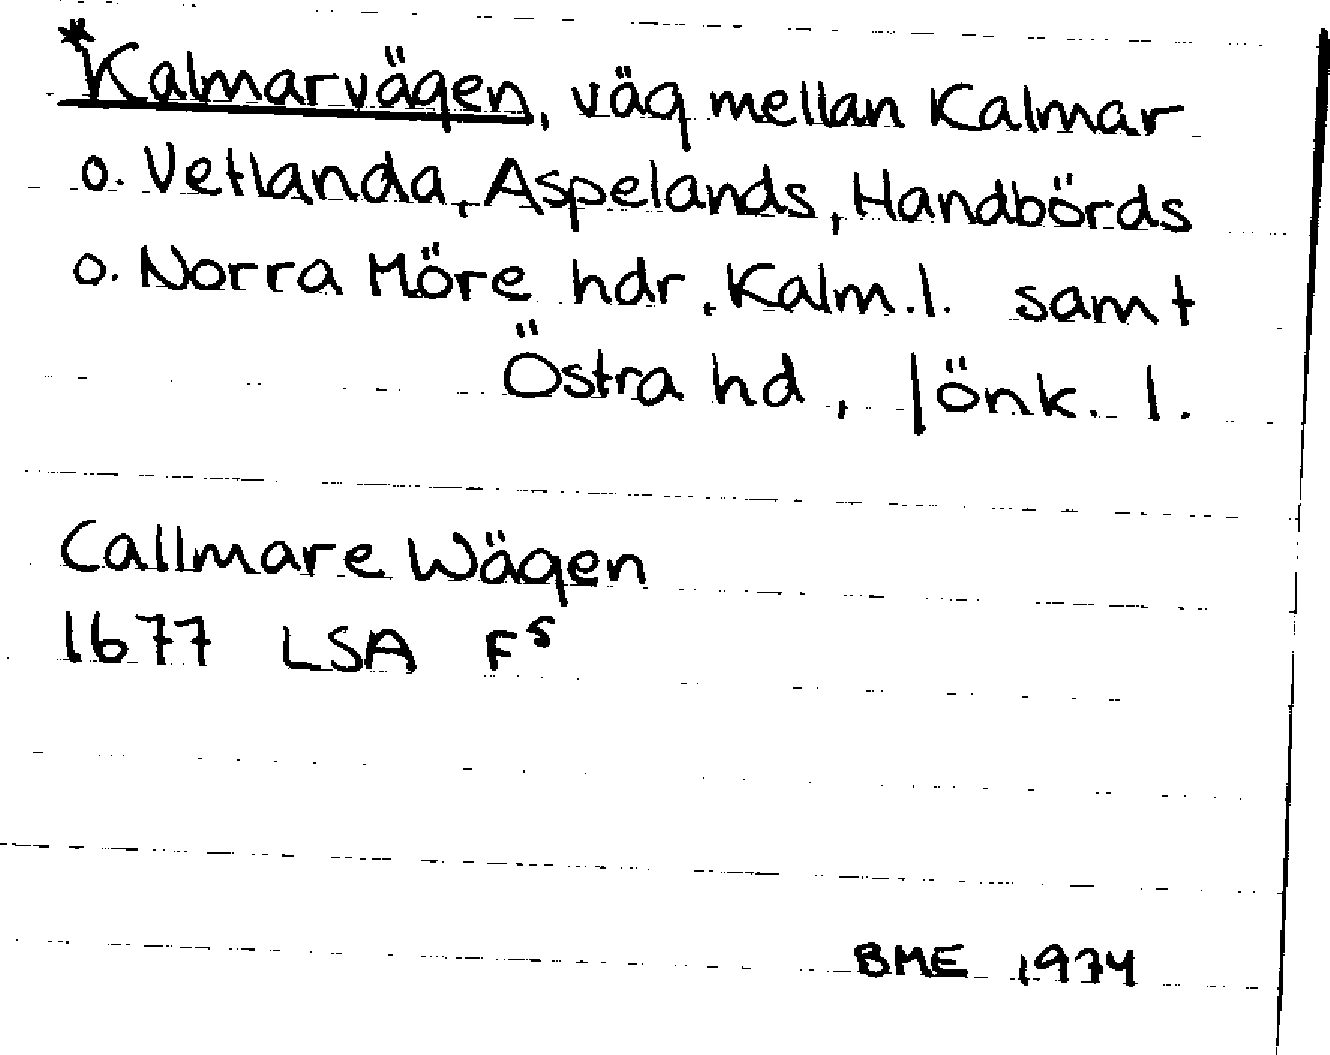 *Kalmarvägen, väg mellan Kalmar
o. Vetlanda, Aspelands, Handbörds
o. Norra Möre hdr, Kalm. l. samt
Östra hd, Jönk. l.
Callmare Wägen
1677 LSA F⁵
BME 1974